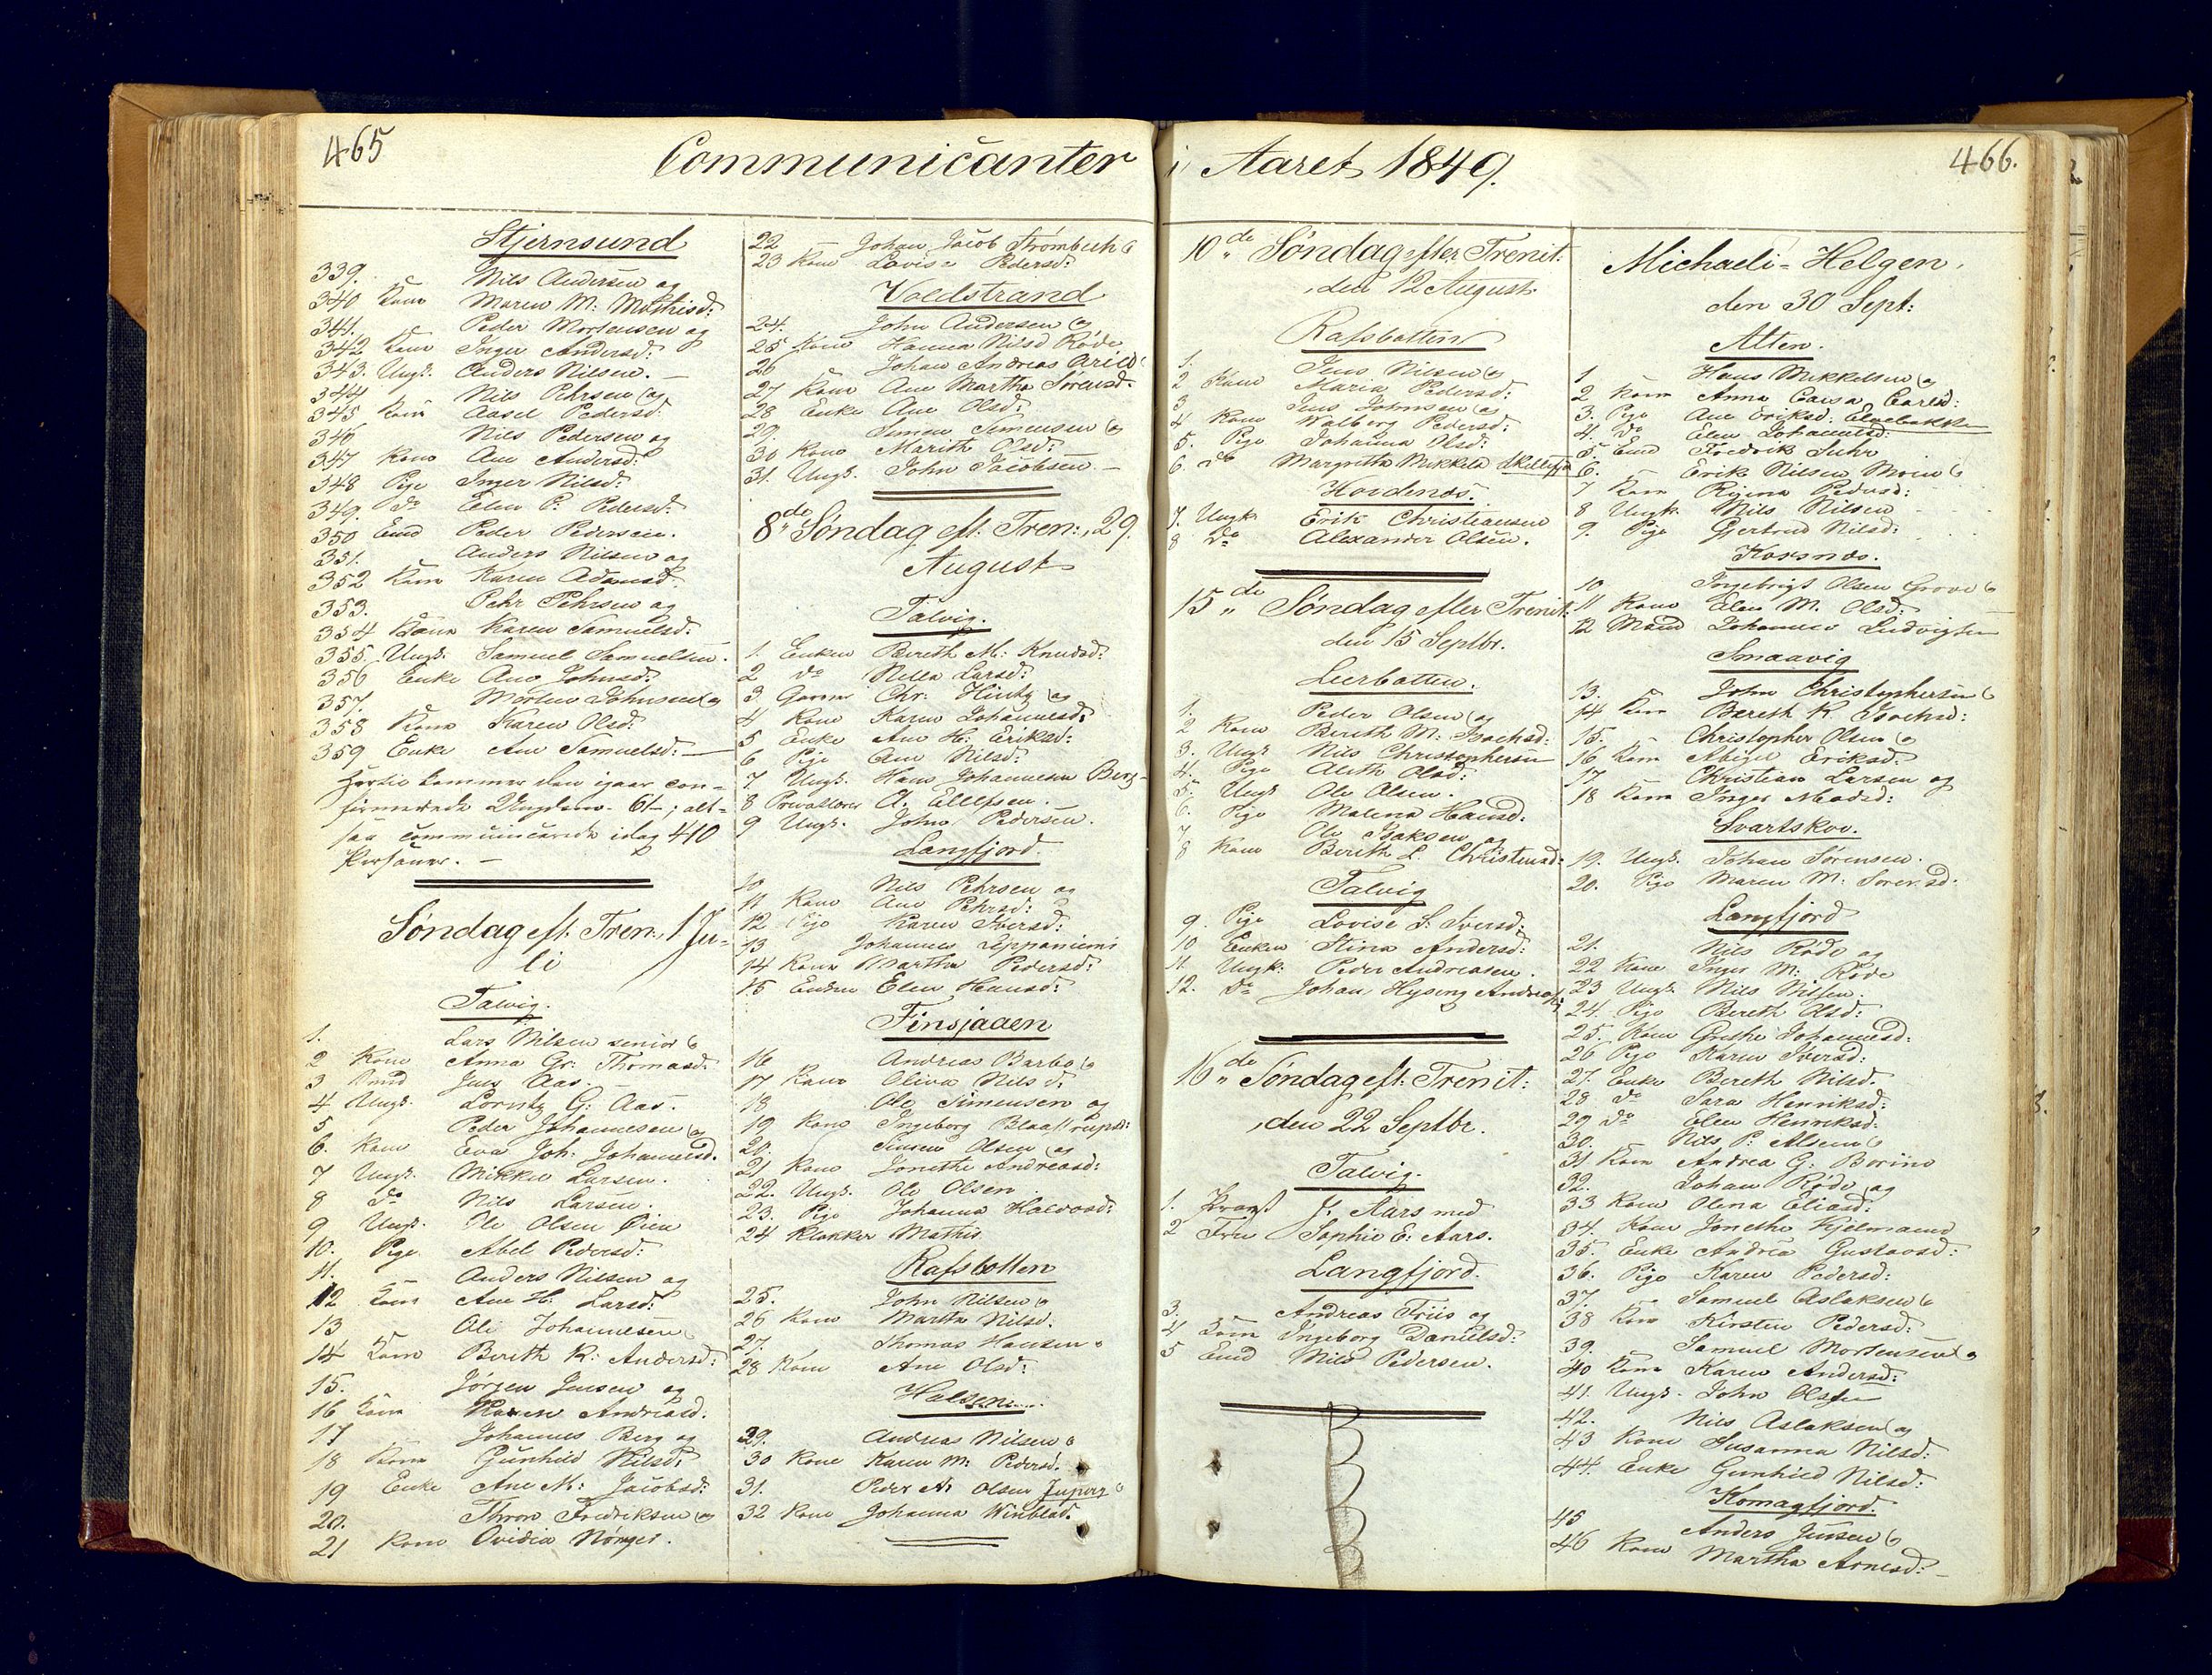 465
Communicanter
Stjernsund
339. Nils Andersen og
340 Kone Maren M: Mathisd:
341. Peder Mortensen og
342 Kone Inger Andersd:
343. Ungk. Anders Nilsen. —
344 Nils Pehrsen og
345 Kone Aasel Pedersd:
346 Nils Pedersen og
347 Kone Ane Andersd:
348 Pige Inger Nilsd:
349. do Elen P: Pedersd:
350 Emd Peder Pedersen.
351. Anders Nilsen og
352 Kone Karen Adamsd.
353. Pehr Pehrsen og
354 Kone Karen Samuelsd:
355. Ungk. Samuel Samuelsen.
356 Enke Ane Johnsd:
357. Morten Johnsen og
358 Kone Karen Olsd:
359 Enke Ane Samuelsd: —
Hertil kommer den igaar con-
firmerede Ungdom. 51 —; alt-
saa communicerede idag 410
Personer. —
Søndag eft. Tren., 1 Ju-
li
Talvig.
1. Lars Nilsen senior og
2 Kone Anna Gr: Thomasd.
3 Emd Jens Aas.
4 Ungk. Lorntz G: Aas.
5 Peder Johannesen og
6. Kone Eva Joh: Johannesd.
7 Ungk. Mikkel Larsen.
8 do Nils Larsen.
9 Ungk. Ole Olsen Øien
10. Pige Abel Pedersd:
11. Anders Nilsen og
12 Kone Ane H: Larsd:
13 Ole Johannesen og
14 Kone Bereth K: Andersd:
15. Jørgen Jensen og
16 Kone Karen Andreasd.
17 Johannes Berg og
18 Kone Gunhild Nilsd:
19 Enke Ane M: Jacobsd:
20. Thron Fredriksen og
21 Kone Ovidia Nønges.
22 Johan Jacob Strømbeck og
23 Kone Lovise Pedersd:
Voldstrand
24. John Andersen og
25 Kone Hanna Nilsd Røde
26 Johan Andreas Arild og
27 Kone Ane Martha Sørensd.
28 Enke Ane Olsd:
29. Simon Simensen og
30 Kone Marith Olsd:
31. Ungk. John Jacobsen. —
8de Søndag eft. Tren:, 29.
August
Talvig.
1. Enken Bereth M: Knudsd:
2 do Nilla Larsd:
3 Chr: Hintz og
4 Kone Karen Johannesd:
5 Enke Ane H: Eriksd:
6 Pige Ane Nilsd:
7 Ungk. Hans Johannesen Berg
8 A. Ellefsen.
9 Ungk. John Pedersen.
Langfjord.
10 Nils Pehrsen og
11 Kone Ane Pehrsd:
12 Pige Karen Iversd:
13 Johannes Leppaniemi
14 Kone Martha Pedersd:
15 Enken Elen Hansd:
Finsjaaen
16 Andreas Barbo og
17 Kone Oliva Nilsd.
18 Ole Simensen og
19 Kone Ingeborg Blaastrupsd:
20. Simon Olsen og
21 Kone Jonethe Andreasd:
22. Ungk. Ole Olsen
23. Pige Johanna Halvorsd:
24 Klokker Mathis.
Rafsbotten
25. John Nilsen og
26 Kone Martha Nilsd.
27. Thomas Hansen og
28 Kone Ane Olsd:
Halsen
29. Andreas Nilsen og
30 Kone Karen M: Pedersd.
31. Peder A: Olsen
32 Kone Johanna Winblad.
i Aaret 1849.
466.
10de Søndag efter Trenit:
, den 12 August.
Rafsbotten
1. Jens Nilsen og
2 Kone Maria Pedersd:
3 Jens Johnsen og
4 Kone Walborg Pedersd:
5. Pige Johanna Olsd:
6. do Margretha Mikkelsd
Hordenæs.
7. Ungk. Erik Christiansen
8 do Alexander Olsen.
15de Søndag efter Trenit:
den 15 Septbr.
Leerbotten.
1. Peder Olsen og
2 Kone Bereth M: Isachsd:
3. Ungk Nils Christophersen
4. Pige Aleth Olsd:
5. Ungk Ole Olsen.
6. Pige Malena Hansd:
7 Ole Isaksen og
8 Kone Bereth L. Christensd:
Talvig
9. Pige Lovise S. Iversd:
10 Enken Stina Andersd:
11. Ungk: Peder Andreasen.
12. do Johan Hysing Andreas:
16de Søndag eft: Trenit:
, den 22 Septbr.
Talvig.
1. Provst J. Aars med
2 Frue Sophie E: Aars.
Langfjord.
3. Andreas Friis og
4 Kone Ingeborg Danielsd:
5 Emd Nils Pedersen.
Michaeli-Helgen,
den 30 Sept:
Alten.
1. Hans Mikkelsen og
2 Kone Anna Caisa Carlsd:
3. Pige Ane Eriksd: Elvebakken
4. do Elen Johannesd:
5. Emd Fredrik Suhr
6. Erik Nilsen Moen og
7 Kone Regina Pedersd:
8 Ungk. Nils Nilsen
9. Pige Gjertrud Nilsd:
Korsnæs.
10 Ingebrigt Olsen Grove og
11 Kone Elen M. Olsd:
12 Mand Johannes Ludvigsen
Smaavig
13. John Christophersen og
14 Kone Bereth K. Isachsd:
15. Christopher Olsen og
16 Kone Abigel Eriksd:
17 Christian Larsen og
18 Kone Inger Madsd:
Svartskov.
19. Ungk. Johan Sørensen.
20. Pige Maren M: Sørensd:
Langfjord
21. Nils Røde og
22 Kone Inger M: Røde
23 Ungk. Nils Nilsen.
24. Pige Bereth Olsd:
25. Kone Grethe Johannesd:
26 Pige Karen Iversd:
27. Enke Bereth Nilsd.
28 do Sara Henriksd:
29 do Elen Henriksd:
30. Nils P: Olsen og
31 Kone Andrea G: Borino
32. Johan Røde og
33 Kone Olena Eliasd:
34. Kone Jonetha Hjelmaand
35. Enke Andrea Gustavsd:
36. Pige Karen Pedersd:
37. Samuel Aslaksen og
38 Kone Kirsten Pedersd:
39. Samuel Mortensen og
40 Kone Karen Andersd:
41. Ungk. John Olsen
42. Nils Aslaksen og
43 Kone Susanna Nilsd:
44. Enke Gunhild Nilsd:
Komagfjord.
45 Anders Jensen og
46 Kone Martha Arnesd: —